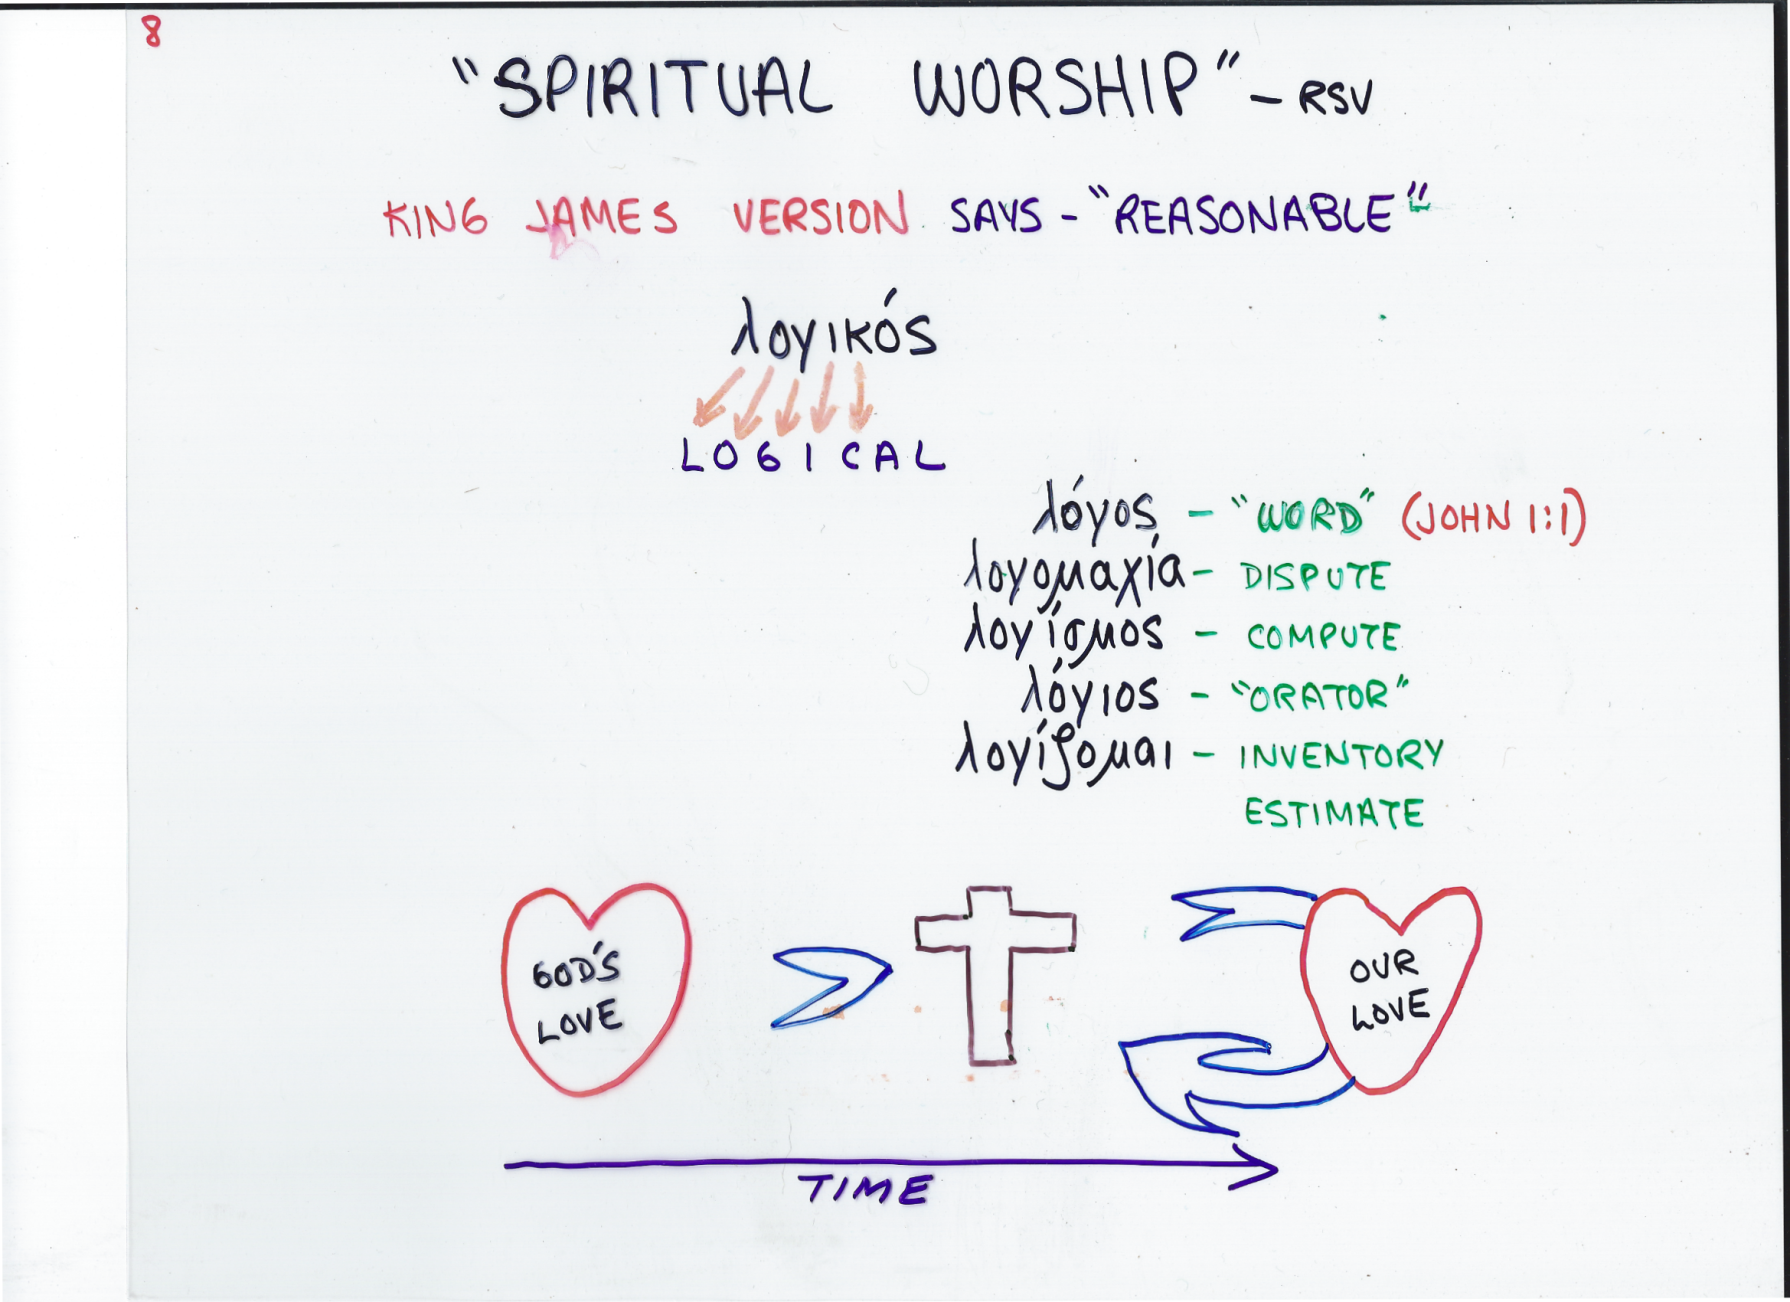 8
"SPIRITUAL WORSHIP" - RSV
KING JAMES VERSION SAYS - "REASONABLE"
λογικός
LOGICAL
λόγος - "WORD" (JOHN 1:1)
λογομαχία - DISPUTE
λογίσμος - COMPUTE
λόγιος - "ORATOR"
λογίζομαι - INVENTORY
ESTIMATE
GOD'S
LOVE
OUR
LOVE
TIME